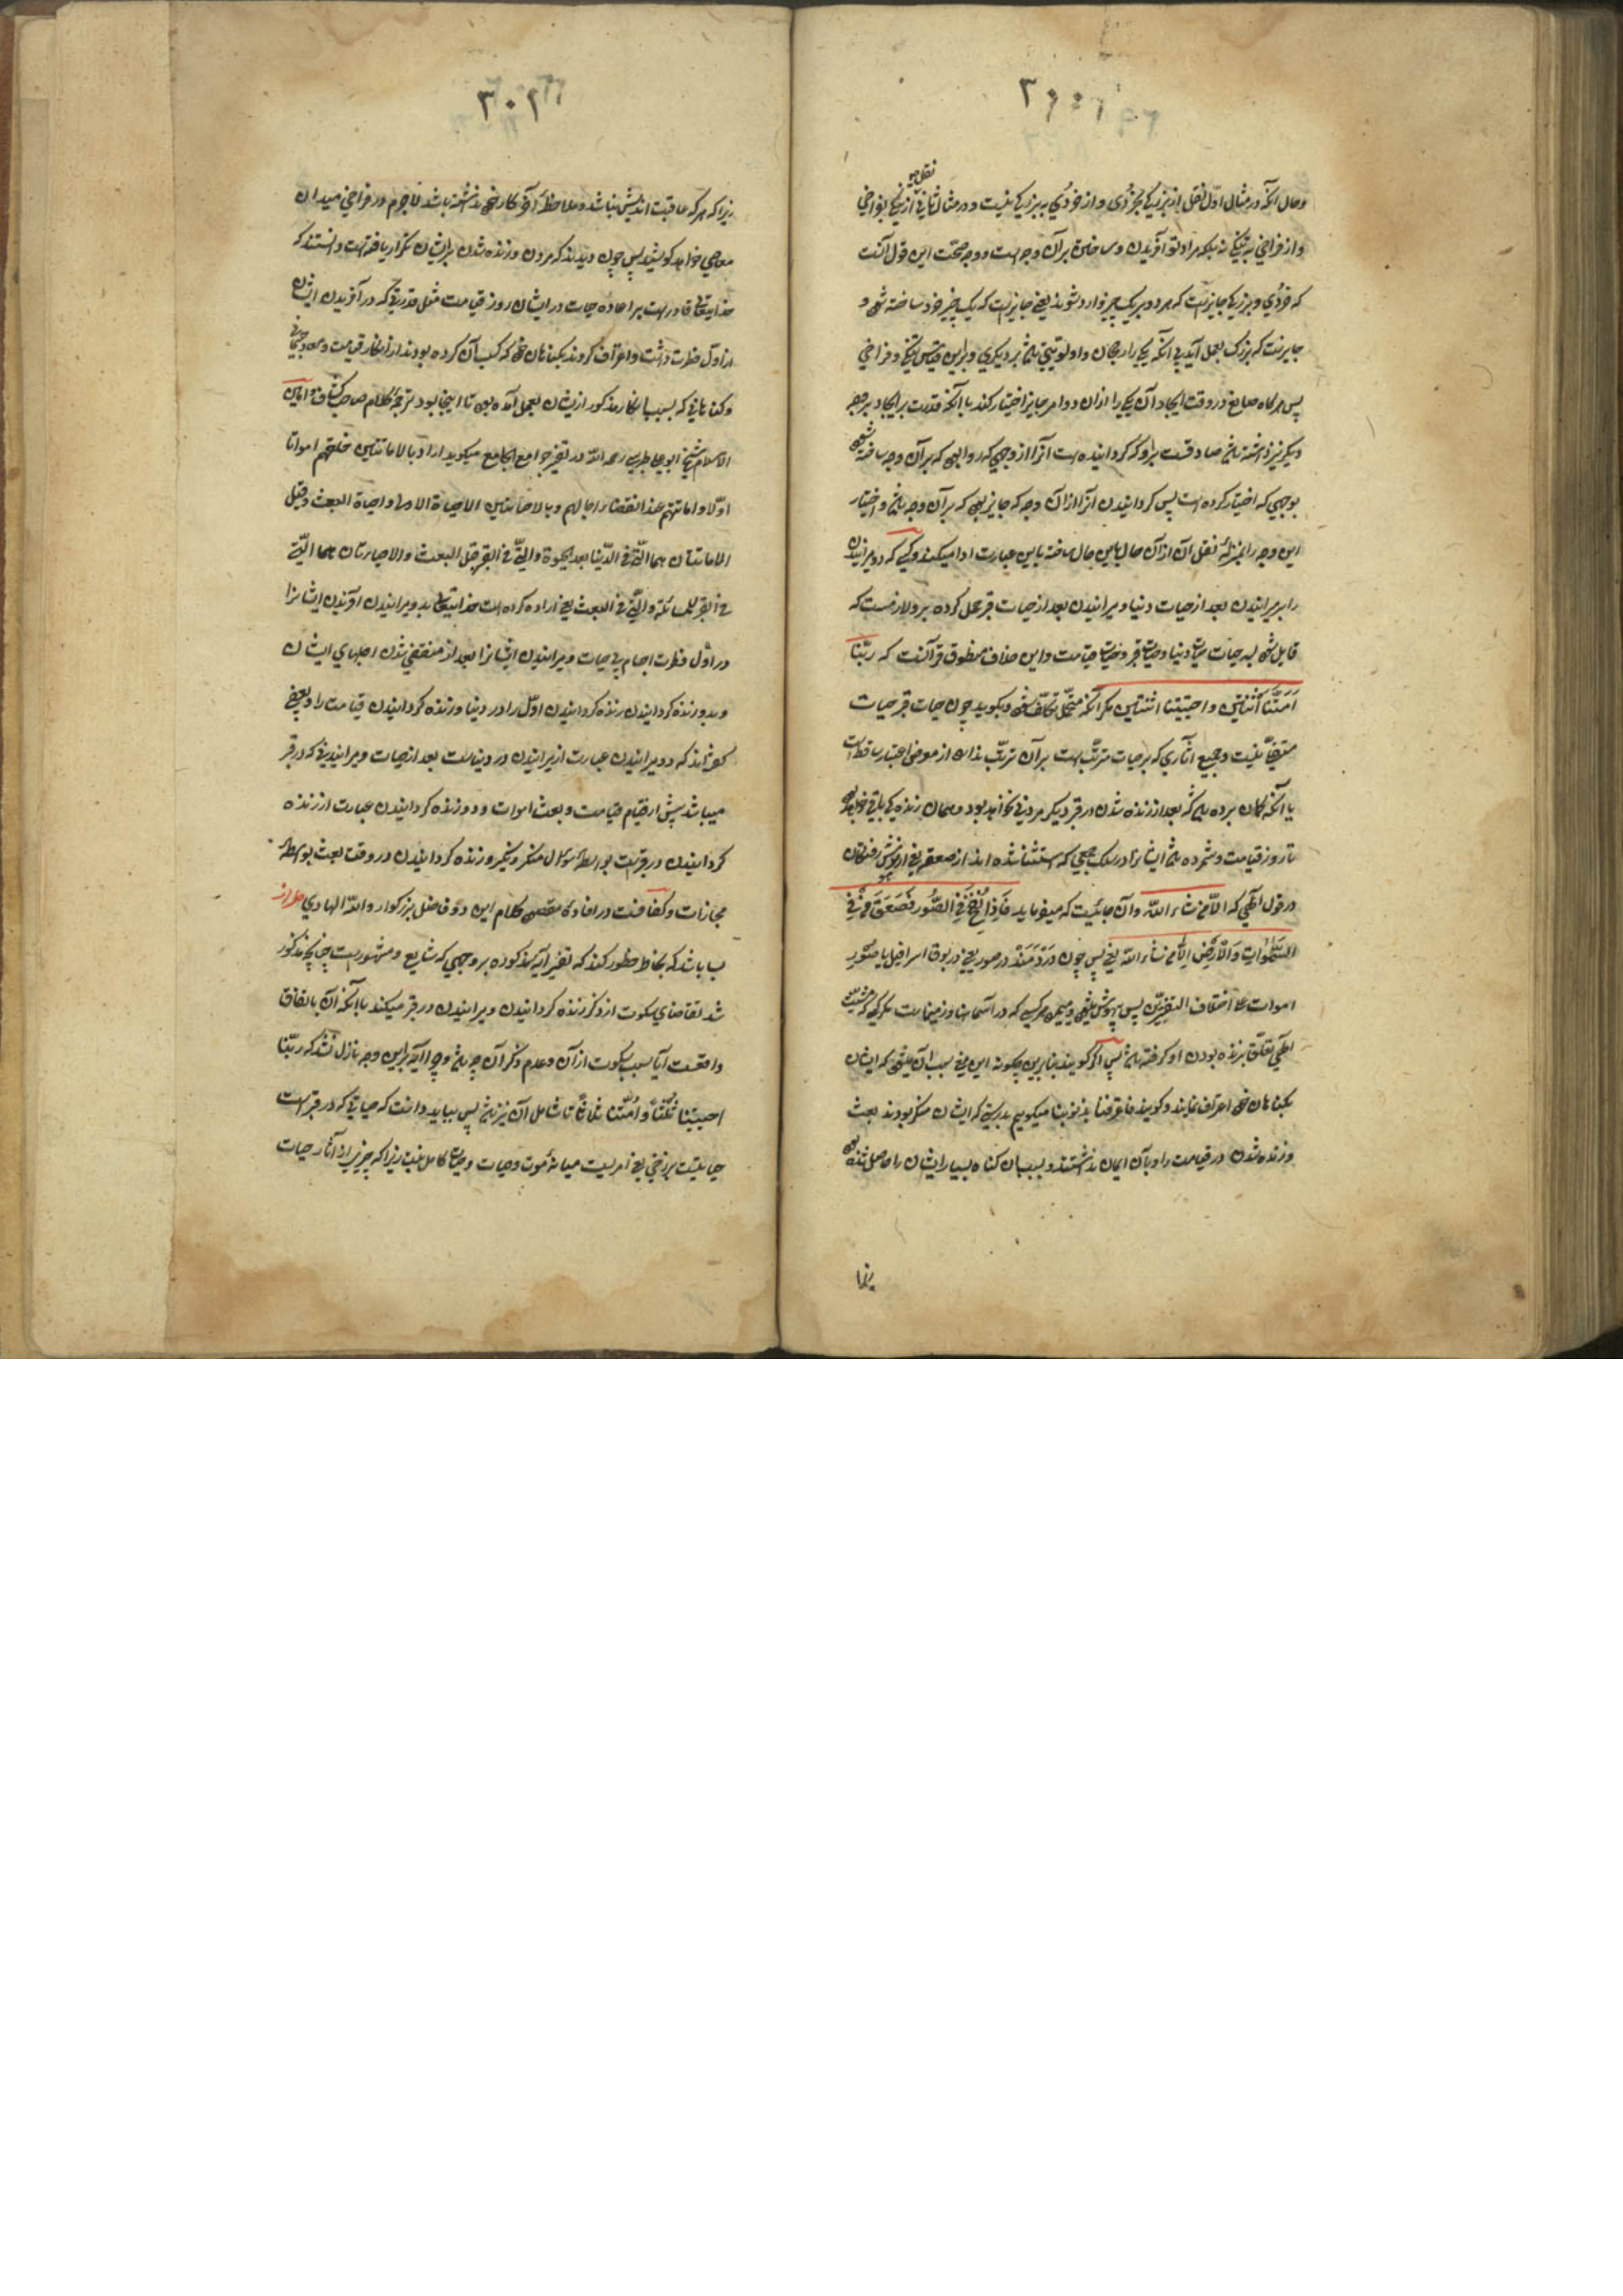 ۳۰۱
نقل
و حال آنکه در مثال اول نقل از بزرگی بخردی و از خردی به بزرگی نیست و در مثال ثانی از تنگی بفراخی
و از فراخی به تنگی نه بلکه مراد تو آفریدن و ساختن بر آن وجه است و وجه صحت این قول آنست
که خردی و بزرگی جایز است که هر دو بر یک چیز وارد شوند یعنی جایز است که یک چیز خرد ساخته شود و
جایز است که بزرگ بعمل آید بی آنکه یکی را رجحان و اولویتی باشد بر دیگری و بر این قیاس تنگی و فراخی
پس هرگاه صانع در وقت ایجاد آن یکی را از آن دو امر جایز اختیار کند با آنکه قدرت بر ایجاد بر وجه
دیگر نیز داشته باشد صادقست برو که گردانیده است آنرا از وجهی که روا بود که بر آن وجه ساخته شود
بوجهی که اختیار کرده است پس گردانیدن آنرا از آن وجه که جایز بود که بر آن وجه باشد و اختیار
این وجه را بمنزله نقل آن از آن حال باین حال ساخته باین عبارت ادا میکنند و کسی که دو میرانیدن
را بر میرانیدن بعد از حیات دنیا و میرانیدن بعد از حیات قبر حمل کرده برو لازمست که
قایل شود به سه حیات حیات دنیا و حیات قبر و حیات قیامت و این خلاف منطوق قرآنست که ربنا
امتنا اثنتین و احییتنا اثنتین مگر آنکه متحمل تکلف شود و بگوید چون حیات قبر حیات
نیست و جمیع آثاری که بر حیات مترتب است بر آن مترتب نه از معرض اعتبار ساقط است
یا آنکه گمان برده باشد که بعد از زنده شدن در قبر دیگر مردنی نخواهد بود و همان زندگی باقی خواهد بود
تا روز قیامت و شمرده باشد ایشانرا در سلک جمعی که مستثنا شده اند از صعقه یعنی از بیهوش رفتگان
در قول الهی که الا من شاء الله و آن جائیست که میفرماید فاذا نفخ فی الصور فصعق من فی
السموات و الارض الا من شاء الله یعنی پس چون دردمند در صور یعنی در بوق اسرافیل یا صور
اموات علی اختلاف التفسیرین پس بیهوش شود و بمیرد هر کسی که در آسمانها و زمینهاست مگر کسی که مشیت
الهی تعلق بزنده بودن او گرفته باشد پس اگر گویند بنابرین چگونه این معنی سبب آن میشود که ایشان
بگناهان خود اعتراف نمایند و گویند فاعترفنا بذنوبنا میگوییم بدرستی که ایشان منکر بودند بعث
و زنده شدن در قیامت را و بآن ایمان نداشتند و بسبب آن گناه بسیار ایشان را حاصل شده بود
زیرا
۳۰۲
زیرا که هر که عاقبت اندیش نباشد و ملاحظه آخر کار خود نداشته باشد لاجرم در فراخی میدان
معاصی خواهد کوشید پس چون دیدند که مردن و زنده شدن بر ایشان تکرار یافته است دانستند که
خدایتعالی قادر است بر اعاده حیات در ایشان روز قیامت مثل قدرتی که در آفریدن ایشان
از اول فطرت داشت و اعتراف کردند بگناهان خود که کسب آن کرده بودند از انکار قیامت و معاد جسمانی
و گناهانی که بسبب انکار مذکور از ایشان بعمل آمده بود تا اینجا بود ترجمه کلام صاحب کشاف و امین
الاسلام شیخ ابو علی طبرسی رحمه الله در تفسیر جوامع الجامع میگوید اراد بالاماتتین خلقهم امواتا
اولا و اماتتهم عند انقضاء اجالهم و بالاحیائتین الاحیاءة الاولی و احیاءة البعث و قیل
الاماتتان هما التی فی الدنیا بعد الحیوة و التی فی القبر قبل البعث و الاحیاءتان هما التی
فی القبر للمسائلة و التی فی البعث یعنی اراده کرده است خدایتعالی بدو میرانیدن آفریدن ایشانرا
در اول فطرت اجسام بی حیات و میرانیدن ایشانرا بعد از منقضی شدن اجلهای ایشان
و بدو زنده گردانیدن زنده گردانیدن اول را در دنیا و زنده گردانیدن قیامت را و بعضی
گفته اند که دو میرانیدن عبارت از میرانیدن در دنیاست بعد از حیات و میرانیدنی که در قبر
میباشد پیش از قیام قیامت و بعث اموات و دو زنده گردانیدن عبارت از زنده
گردانیدن در قبرست بواسطه سؤال منکر و نکیر و زنده گردانیدن در وقت بعث بواسطه
مجازات و مکافات در افاده مقصود کلام این دو فاضل بزرگوار و الله الهادی
بباید که بخاطر خطور کند که تفسیر آیه مذکوره بر وجهی که شایع و مشهور است چنانچه مذکور
شد تقاضای سکوت از ذکر زنده گردانیدن و میرانیدن در قبر میکند با آنکه آن باتفاق
واقعست آیا سبب سکوت از آن و عدم ذکر آن چه باشد و چرا آیه بر این وجه نازل نشد که ربنا
احییتنا ثلثا و امتنا ثلاثا تا شامل آن نیز باشد پس بباید دانست که حیاتی که در قبر است
حیاتیست برزخی یعنی امریست میانه موت و حیات و حیات کامل نیست زیرا که چیزی از آثار حیات